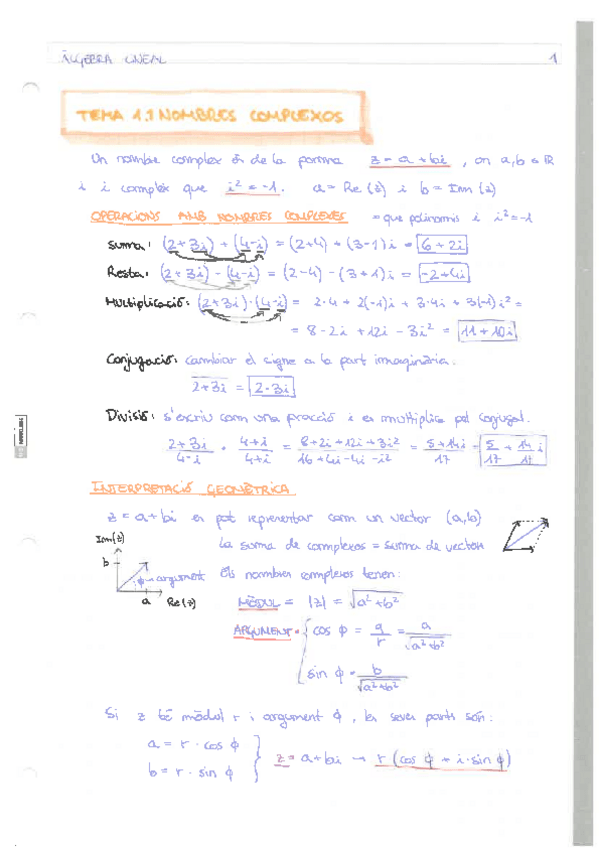 ÀLGEBRA LINEAL 1
TEMA 1.1 NOMBRES COMPLEXOS
Un nombre complex és de la forma z = a + bi , on a, b ∈ ℝ
i i complex que i² = -1. a = Re(z) i b = Imm(z)
OPERACIONS AMB NOMBRES COMPLEXES = que polinomis i i² = -1
Suma: (2+3i) + (4-i) = (2+4) + (3-1)i = 6 + 2i
Resta: (2+3i) - (4-i) = (2-4) - (3+1)i = -2+4i
Multiplicació: (2+3i)·(4-i) = 2·4 + 2(-1)i + 3·4i + 3(-1)i² =
= 8 - 2i + 12i - 3i² = 11 + 10i
Conjugació: cambiar el signe a la part imaginària.
2+3i = 2-3i
Divisió: s'escriu com una fracció i es multiplica pel conjugat.
2+3i/4-i · 4+i/4+i = 8+2i+12i+3i²/16+4i-4i-i² = 5+14i/17 = 5/17 + 14/17 i
INTERPRETACIÓ GEOMÈTRICA
z = a + bi es pot representar com un vector (a,b)
Imm(z)
la suma de complexos = suma de vectors
b
argument
Els nombres complexos tenen:
ϕ
a Re(z)
MÒDUL = |z| = √a² + b²
ARGUMENT = cos ϕ = a/r = a/√a²+b²
sin ϕ = b/√a²+b²
Si z té mòdul r i argument ϕ, les seves parts són:
a = r · cos ϕ
b = r · sin ϕ
z = a + bi → r (cos ϕ + i · sin ϕ)